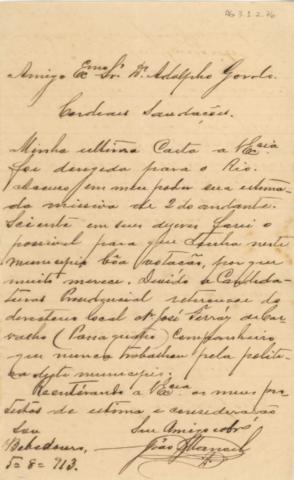 AG 3.1.2.76
Amigo Exmo. Sr. Dr. Adolpho Gordo.
Cordeaes Saudações.
Minha ultima Carta a V. Excia
foi deregida para o Rio.
em meu poder sua estima-
da missiva de 2 do andante.
Sciente em seus dizeres farei o
possivel para que tenha neste
municipio bôa votação, porque
muito merece. Devido a Candida-
tura Presidencial retirou-se do
directorio local o José Ferraz de Car-
valho Companheiro
que nunca trabalhou pela politi-
ca deste municipio.
Reenterando a V. Excia os meus pro-
testos de estima e consideração
Sou Seu Amigo
Bebedouro,
5-8-913. João